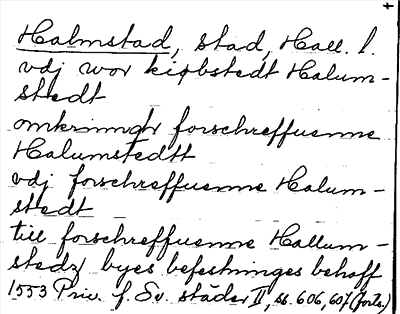 Halmstad, stad, Hall. l.
vdj wor kiøbstedt Halum-
stedt
omkrinngh forschreffuenne
Halumstedtt
vdj forschreffuenne Halum-
stedt
till forschreffuenne Hallum-
stedz byes befestninges behoff
1553 Priv. f. Sv. städer II, ss. 606, 607 (forts.)